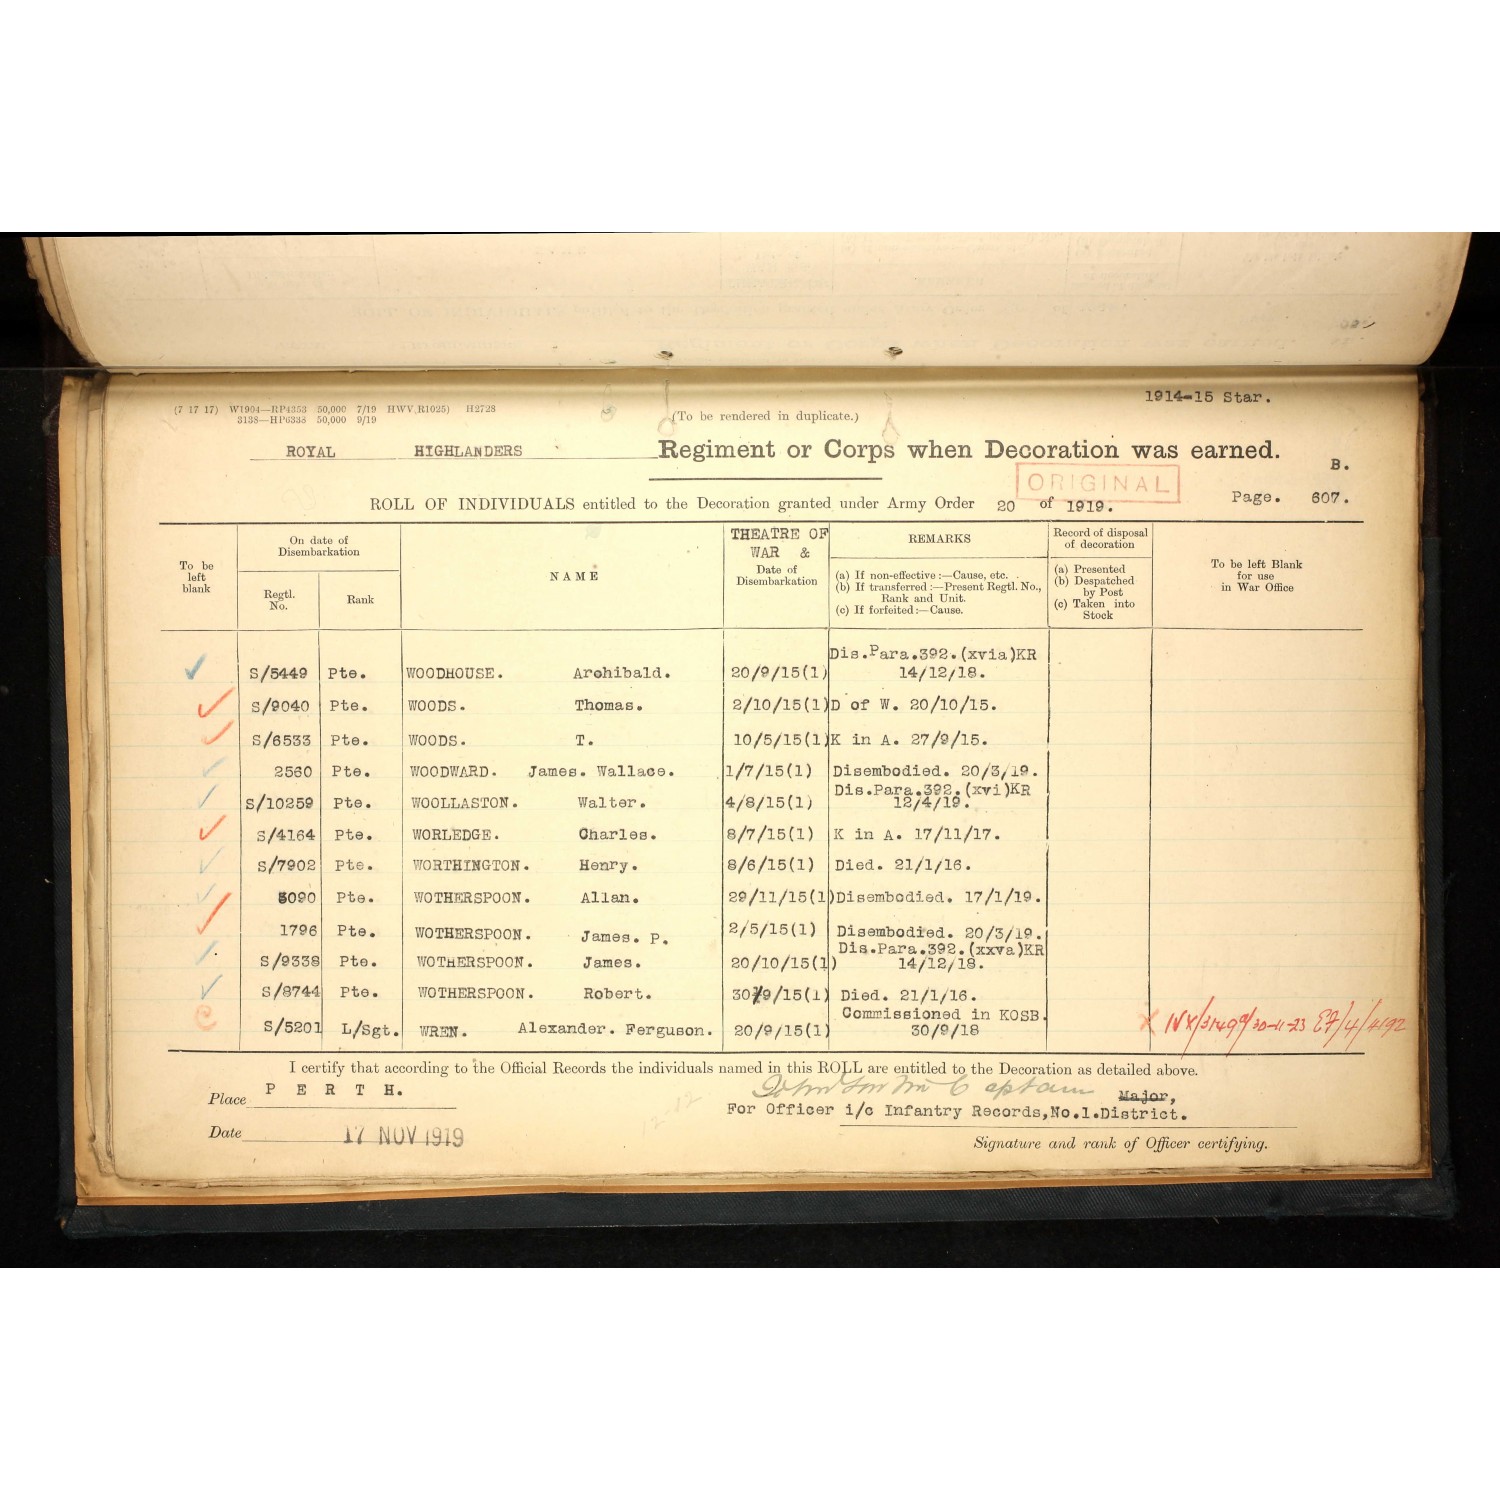 1914-15 Star.
(7 17 17) W1904—RP4353 50,000 7/19 HWV,R1025) H2728
3138—HP6338 50,000 9/19
(To be rendered in duplicate.)
ROYAL HIGHLANDERS Regiment or Corps when Decoration was earned.
B.
ORIGINAL
ROLL OF INDIVIDUALS entitled to the Decoration granted under Army Order 20 of 1919.
Page. 607.
To be left blank
On date of Disembarkation
Regtl. No.
Rank
NAME
THEATRE OF WAR & Date of Disembarkation
REMARKS
(a) If non-effective:—Cause, etc.
(b) If transferred:—Present Regtl. No., Rank and Unit.
(c) If forfeited:—Cause.
Record of disposal of decoration
(a) Presented
(b) Despatched by Post
(c) Taken into Stock
To be left Blank for use in War Office
Dis.Para.392.(xvia)KR
S/5449 Pte. WOODHOUSE. Archibald. 20/9/15(1) 14/12/18.
S/9040 Pte. WOODS. Thomas. 2/10/15(1) D of W. 20/10/15.
S/6533 Pte. WOODS. T. 10/5/15(1) K in A. 27/9/15.
2560 Pte. WOODWARD. James. Wallace. 1/7/15(1) Disembodied. 20/3/19.
Dis.Para.392.(xvi)KR
S/10259 Pte. WOOLLASTON. Walter. 4/8/15(1) 12/4/19.
S/4164 Pte. WORLEDGE. Charles. 8/7/15(1) K in A. 17/11/17.
S/7902 Pte. WORTHINGTON. Henry. 8/6/15(1) Died. 21/1/16.
3090 Pte. WOTHERSPOON. Allan. 29/11/15(1) Disembodied. 17/1/19.
1796 Pte. WOTHERSPOON. James. P. 2/5/15(1) Disembodied. 20/3/19.
Dis.Para.392.(xxva)KR
S/9338 Pte. WOTHERSPOON. James. 20/10/15(1) 14/12/18.
S/8744 Pte. WOTHERSPOON. Robert. 30/9/15(1) Died. 21/1/16.
Commissioned in KOSB.
S/5201 L/Sgt. WREN. Alexander. Ferguson. 20/9/15(1) 30/9/18
I certify that according to the Official Records the individuals named in this ROLL are entitled to the Decoration as detailed above.
Place PERTH.
Captain Major,
For Officer i/c Infantry Records,No.1.District.
Date 17 NOV 1919
Signature and rank of Officer certifying.